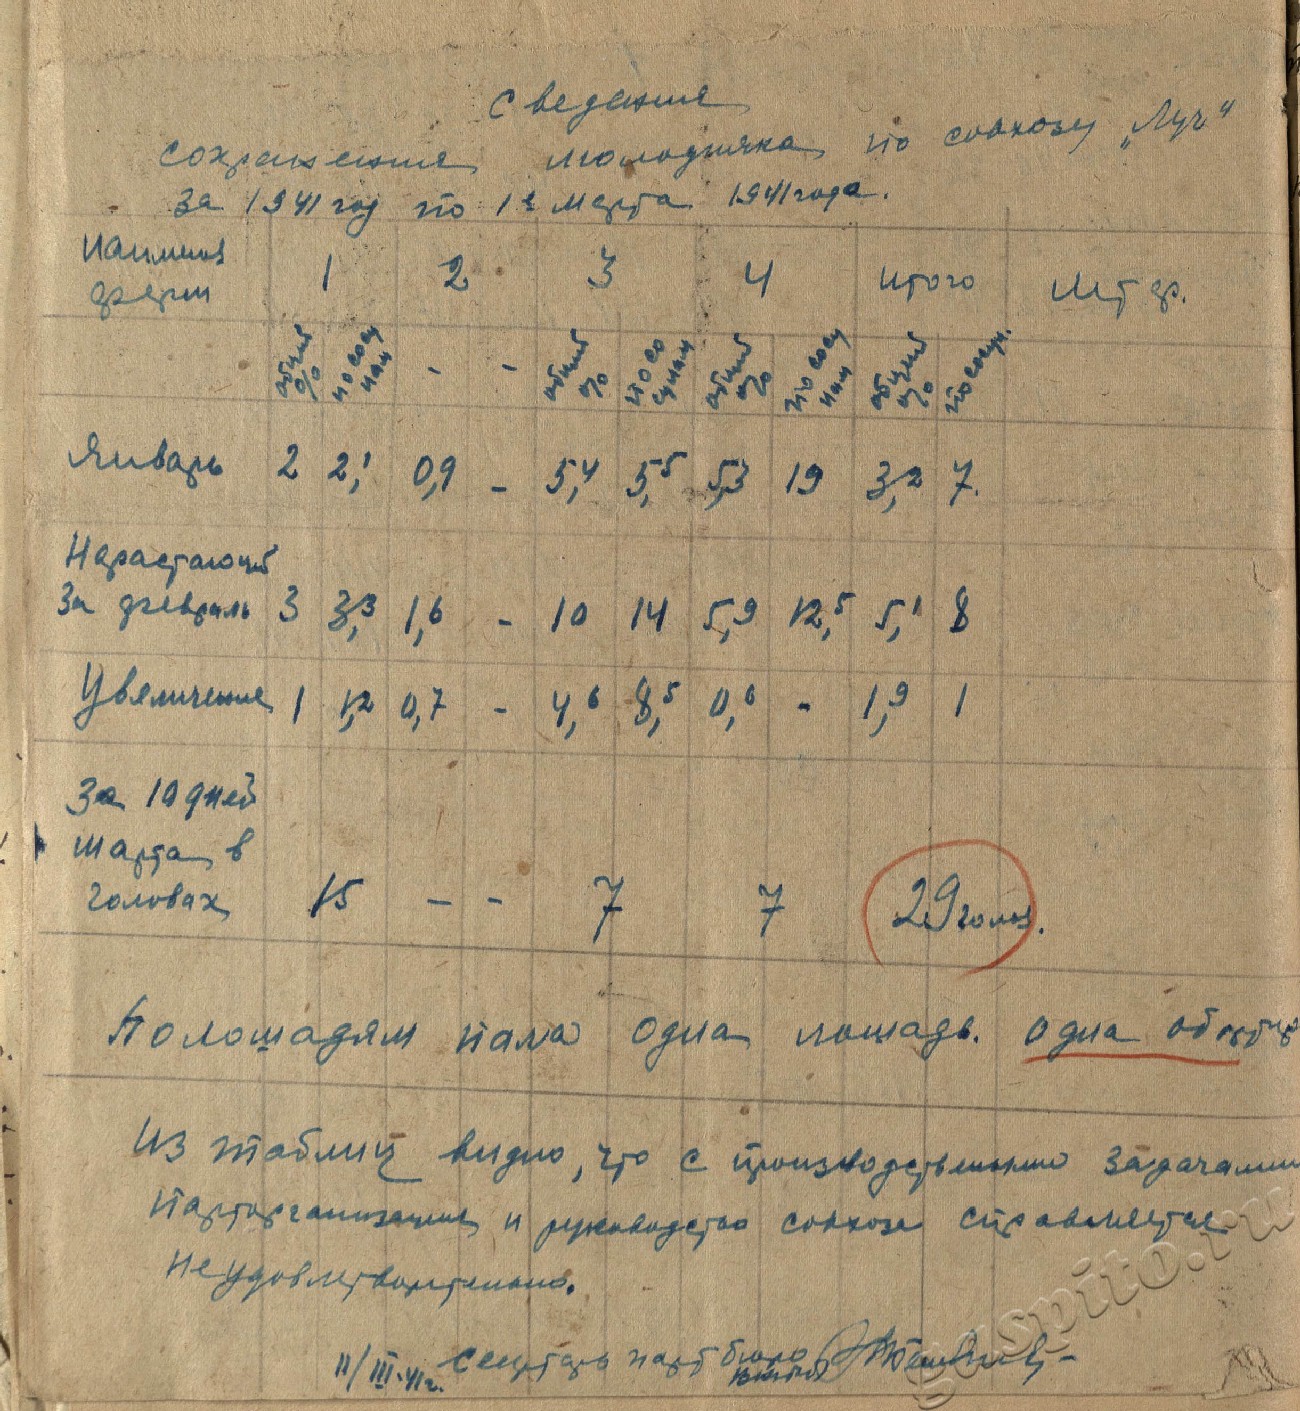 Сведения
сохранения молодняка по совхозу „Луч“
за 1941 год по 1е марта 1941 года.
Наимен 1 2 3 4 Итого
ферм
общий % по сосу нам - - общий % по со сунам общий % по сосу нам общий % по сосун.
Январь 2 2,1 0,9 - 5,4 5,5 5,3 19 3,2 7.
Нарастающий
за февраль 3 3,3 1,6 - 10 14 5,9 12,5 5,1 8
Увеличение 1 1,2 0,7 - 4,6 8,5 0,6 - 1,9 1
За 10 дней
марта в
головах 15 - - 7 7 29 голов.
По лошадям пала одна лошадь. одна
Из таблиц видно, что с производственными задачами
парторганизация и руководство совхоза справляется
неудовлетворительно.
11/III-41г. Секретарь парт бюро
gaspito.ru